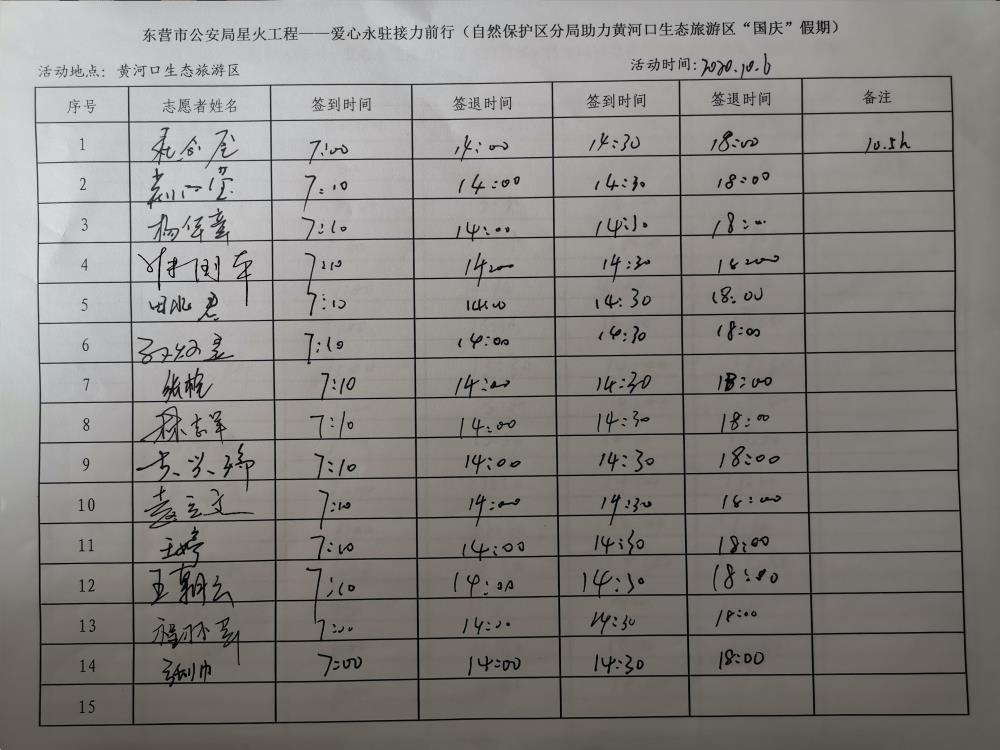 东营市公安局星火工程——爱心永驻接力前行（自然保护区分局助力黄河口生态旅游区“国庆”假期）
活动地点：黄河口生态旅游区 活动时间：2020.10.6
序号 志愿者姓名 签到时间 签退时间 签到时间 签退时间 备注
1 7:00 14:00 14:30 18:00 10.5h
2 7:10 14:00 14:30 18:00
3 7:10 14:00 14:30 18:00
4 7:10 14:00 14:30 18:00
5 7:10 14:00 14:30 18:00
6 7:10 14:00 14:30 18:00
7 张栋 7:10 14:00 14:30 18:00
8 林志军 7:10 14:00 14:30 18:00
9 7:10 14:00 14:30 18:00
10 袁立文 7:10 14:00 14:30 18:00
11 王婷 7:10 14:00 14:30 18:00
12 王朝云 7:10 14:00 14:30 18:00
13 7:00 14:00 14:30 18:00
14 7:00 14:00 14:30 18:00
15